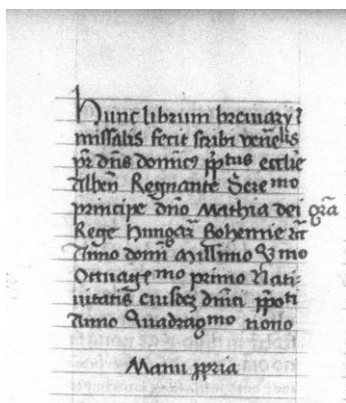 Hunc librum breviarÿ ⁊
missalis fecit scribi ven̄elis
pr̄ dn̄s domicꝰ pp̄tus eccl̄ie
Alben̄ Regnante Sere mo
principe dn̄o Mathia dei gr̄a
Rege Hungar̄ Bohemie
Anno domī Millimo Q mo
Octuage mo primo Nati-
uitatis eiusdēz dnīci pp̄oti
Anno Quadrag mo nono
Manu ppria